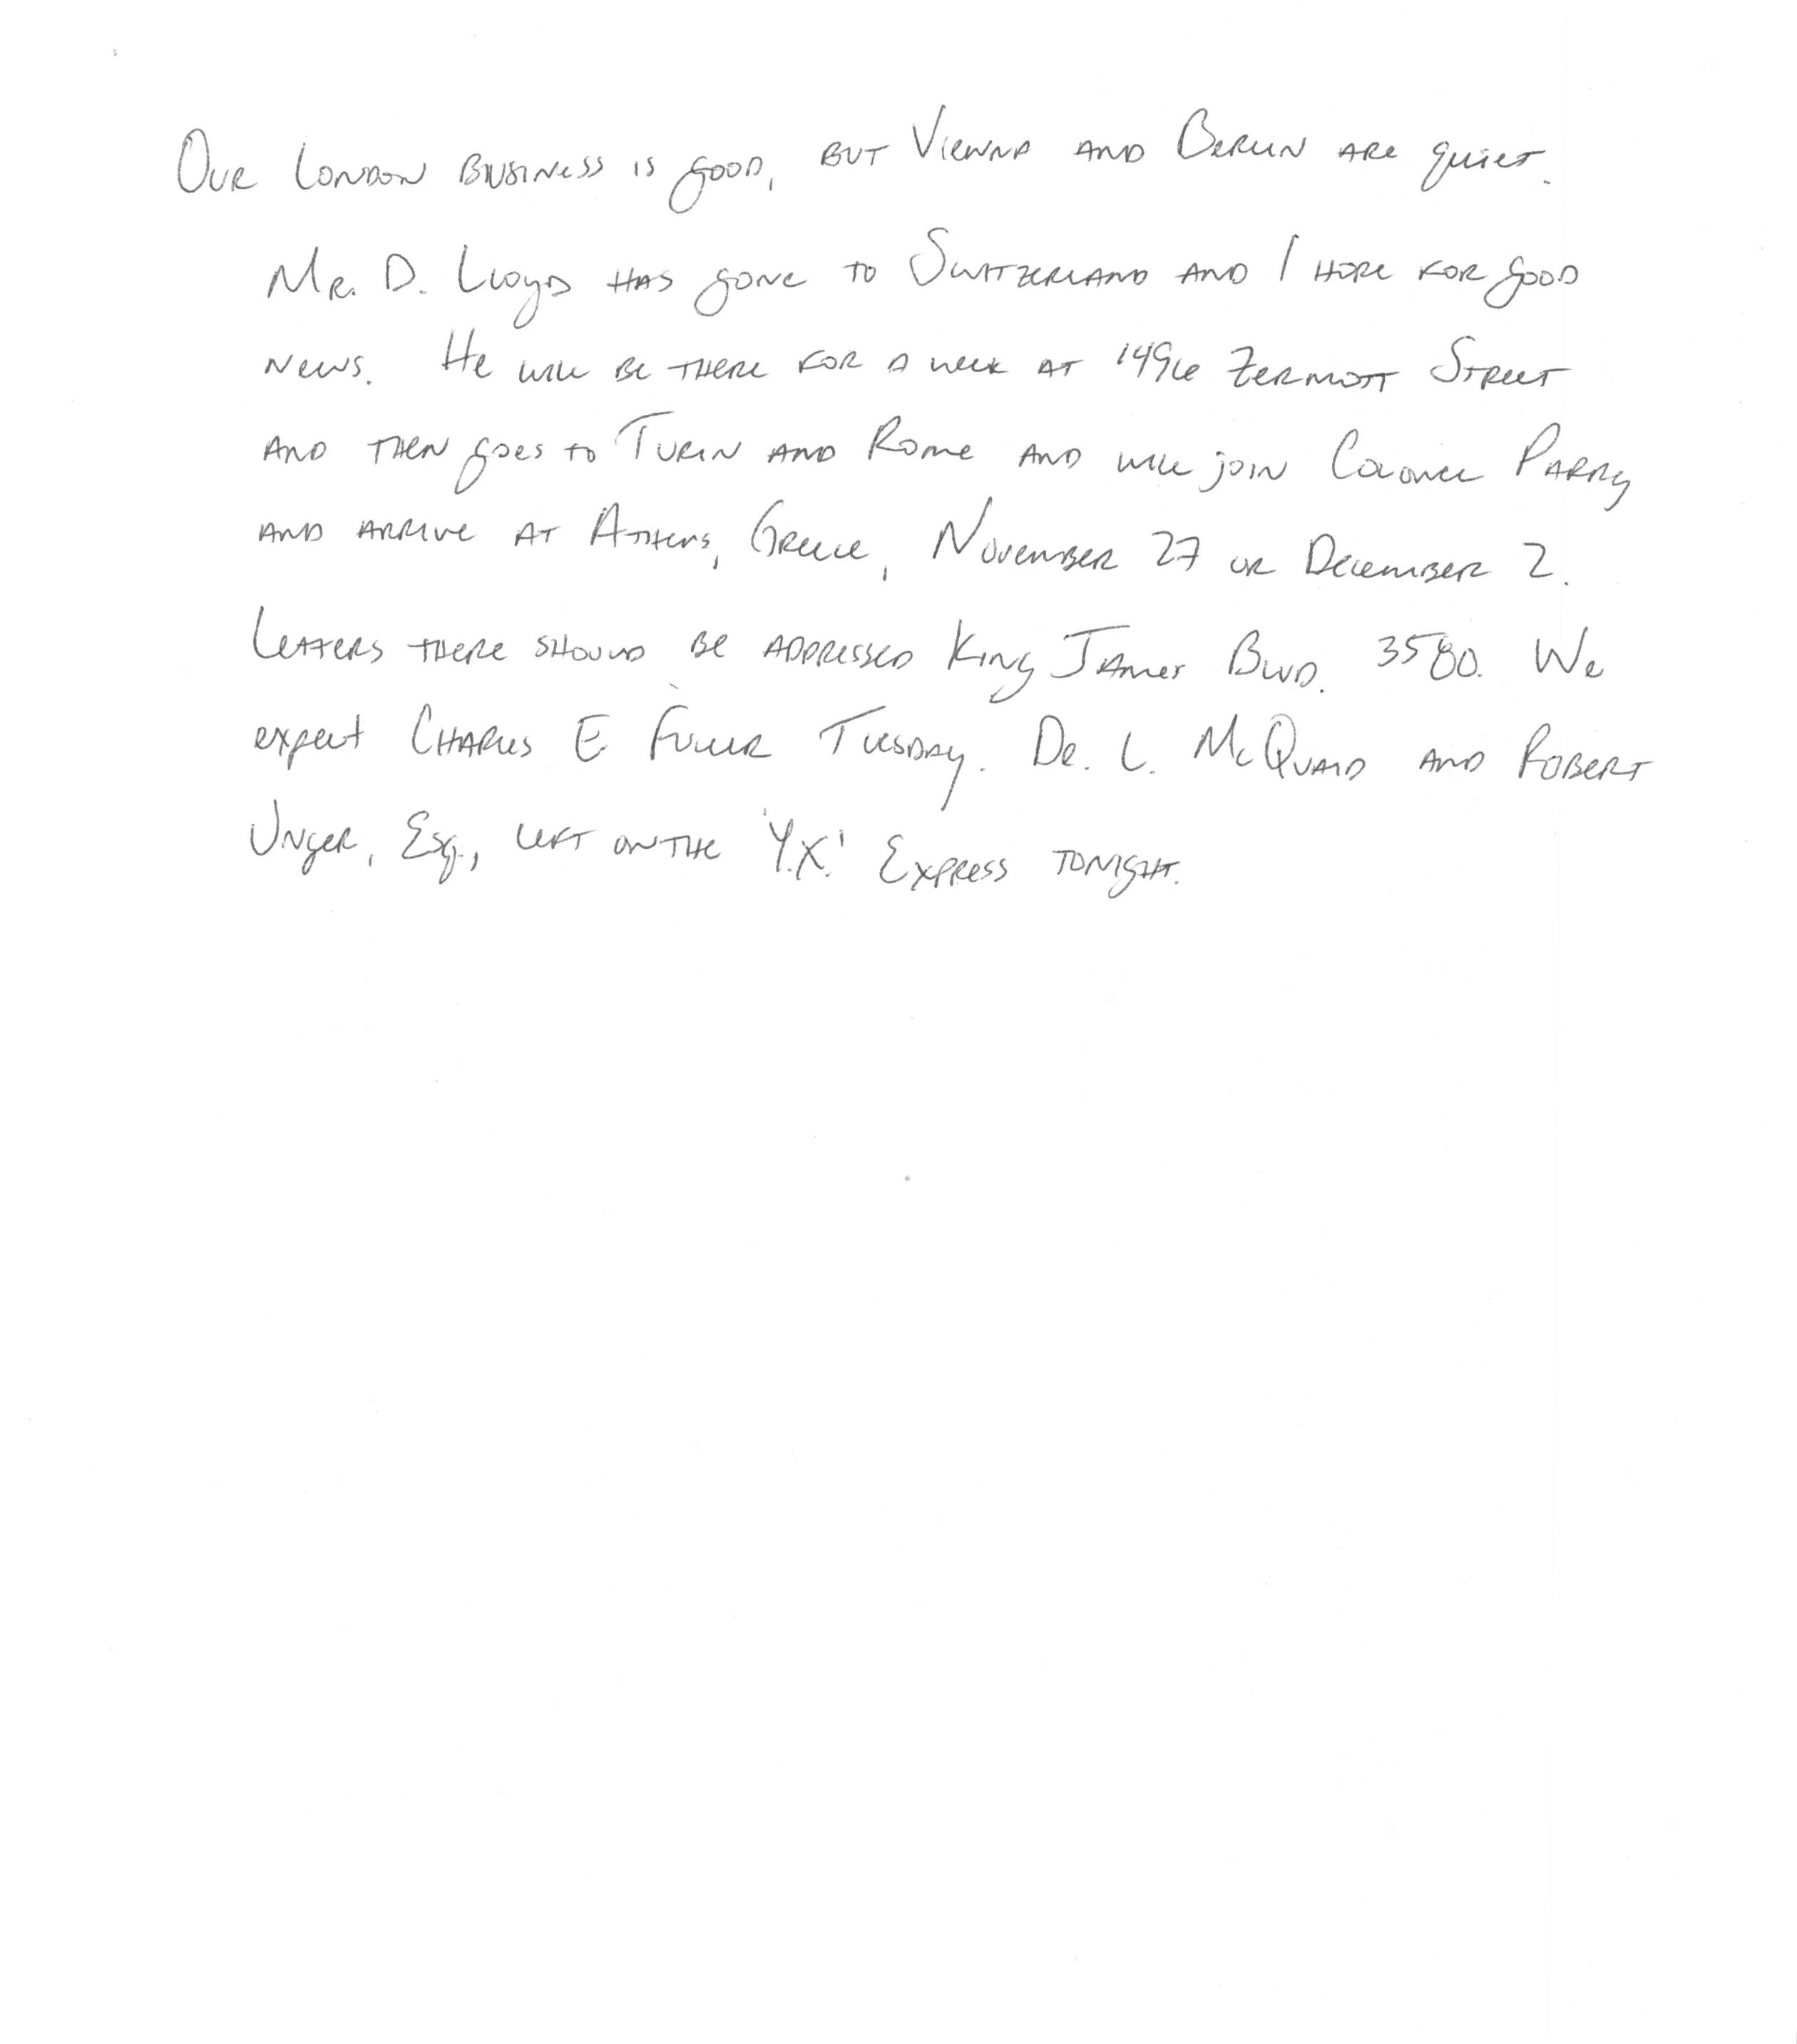 Our London business is good, but Vienna and Berlin are quiet.
Mr. D. Lloyd has gone to Switzerland and I hope for good
news. He will be there for a week at 1496 Zermott Street
and then goes to Turin and Rome and will join Colonel Parry
and arrive at Athens, Greece, November 27 or December 2.
Letters there should be addressed King James Blvd. 3580. We
expect Charles E Fuller Tuesday. Dr. L. McQuaid and Robert
Unger, Esq., left on the 'Y.X.' Express tonight.